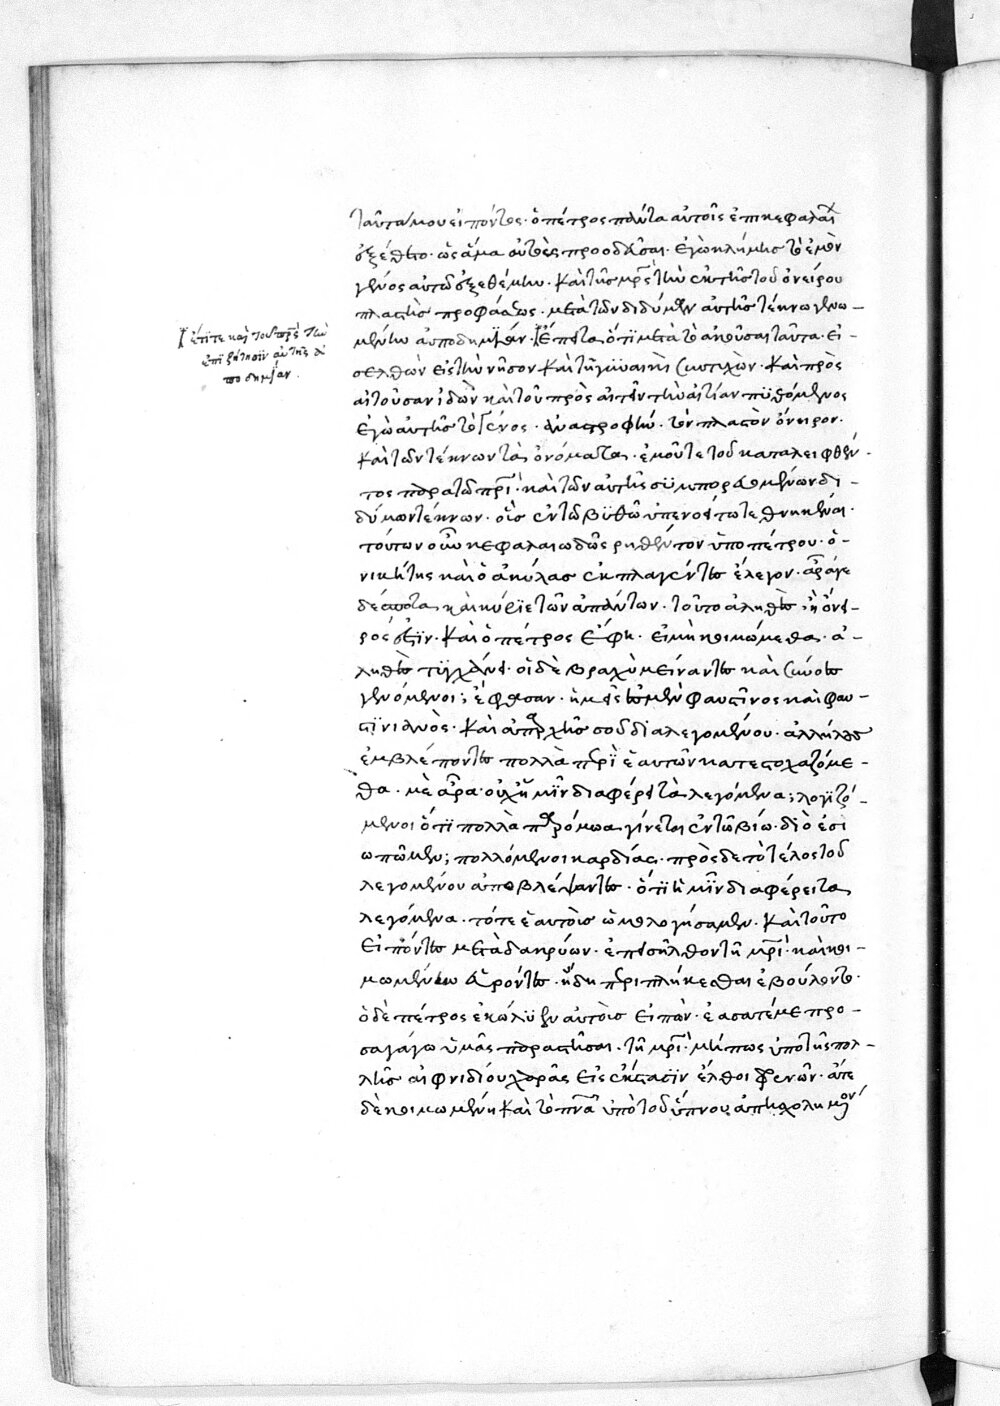 ταῦτά μου εἰπόντος· ὁ πέτρος πάντα αὐτοῖς ἐπὶ κεφαλαί
ἐξέθετο· ὡς ἅμα αὐτὸς προοδεῦσαι· ἐγὼ κλήμης τὸ ἐμὸν
γένος αὐτῷ ἐξεθέμην· καὶ τῆς μρς τὴν ἐκ τῆς τοῦ ὀνείρου
πλαστῆς προφάσεως· μετὰ τῶν διδύμων αὐτῆς τέκνων γενο-
μένην ἀποδημίαν· ἔπειτα ὅτι μετὰ τὸ ἀκοῦσαι ταῦτα· εἰ-
σελθὼν εἰς τὴν νῆσον καὶ τῇ γυναικὶ συντυχὼν· καὶ πρὸς
αἰτοῦσαν ἰδὼν καὶ τοῦ προσαιτεῖν τὴν αἰτίαν πυθόμενος
ἔγνω αὐτῆς τὸ γένος· ἀναστροφὴν· τὸν πλαστὸν ὄνειρον·
καὶ τῶν τέκνων τὰ ὀνόματα· ἐμοῦ τε τοῦ καταλειφθέν-
τος παρὰ τῷ πρί· καὶ τῶν αὐτῆς συμπορευομένων δι-
δύμων τέκνων· οὓς ἐν τῷ βυθῷ ὑπενόει τω τεθνηκέναι·
τούτων οὖν κεφαλαιωδῶς ῥηθέντον ὑπὸ πέτρου· ὁ-
νικήτης καὶ ὁ ἀκύλας ἐκπλαγέντες ἔλεγον· ἆρά γε
δέσποτα καὶ κύριε τῶν ἁπάντων· τοῦτο ἀληθὲς ἢ ὄνει-
ρός ἐστιν· καὶ ὁ πέτρος ἔφη· εἰ μὴ κοιμώμεθα· ἀ-
ληθὲς τυγχάνει· οἱ δὲ βραχὺ μείναντες καὶ σύννοες
γενόμενοι; ἔφησαν· ἡμεῖς ἐσμὲν φαυστῖνος καὶ φαυ-
στινιανὸς· καὶ ἀπαρχῆς σοῦ διαλεγομένου· ἀλλήλοις
ἐμβλέποντες πολλὰ περὶ ἑαυτῶν κατεστοχαζόμε-
θα· μὲ ἆρα οὐχ ἡμῖν διαφέρει τὰ λεγόμενα; λογιζό-
μενοι ὅτι πολλὰ παρόμοια γίνεται ἐν τῷ βίῳ· διὸ ἐσι
ωπῶμεν; παλλόμενοι καρδίας· πρὸς δὲ τὸ τέλος τοῦ
λεγομένου ἀποβλέψαντες· ὅτι ἡμῖν διαφέρει τὰ
λεγόμενα· τότε ἑαυτοὺς ὡμολογήσαμεν· καὶ τοῦτο
εἰπόντες μετὰ δακρύων· ἐπεισῆλθον τῇ μρί· καὶ κοι-
μωμένην εὑρόντες· ἤδη περιπλέκεσθαι ἐβούλοντο·
ὁ δὲ πέτρος ἐκώλυσεν αὐτοὺς εἰπὼν· ἐάσατέ με προ-
σαγάγω ὑμᾶς παραστῆσαι· τῇ μρί· μήπως ὑπὸ τῆς πολ-
λῆς αἰφνιδίου χαρᾶς εἰς ἔκστασιν ἔλθοι φρενῶν· ἅτε
δὲ κοιμωμένη καὶ τὸ πνα ὑπὸ τοῦ ὕπνου ἀπησχολημον
ἔτι τε καὶ τοῦ πρς τὴν
ἐπιζήτησιν αὐτῆς ἀ
ποδημίαν.